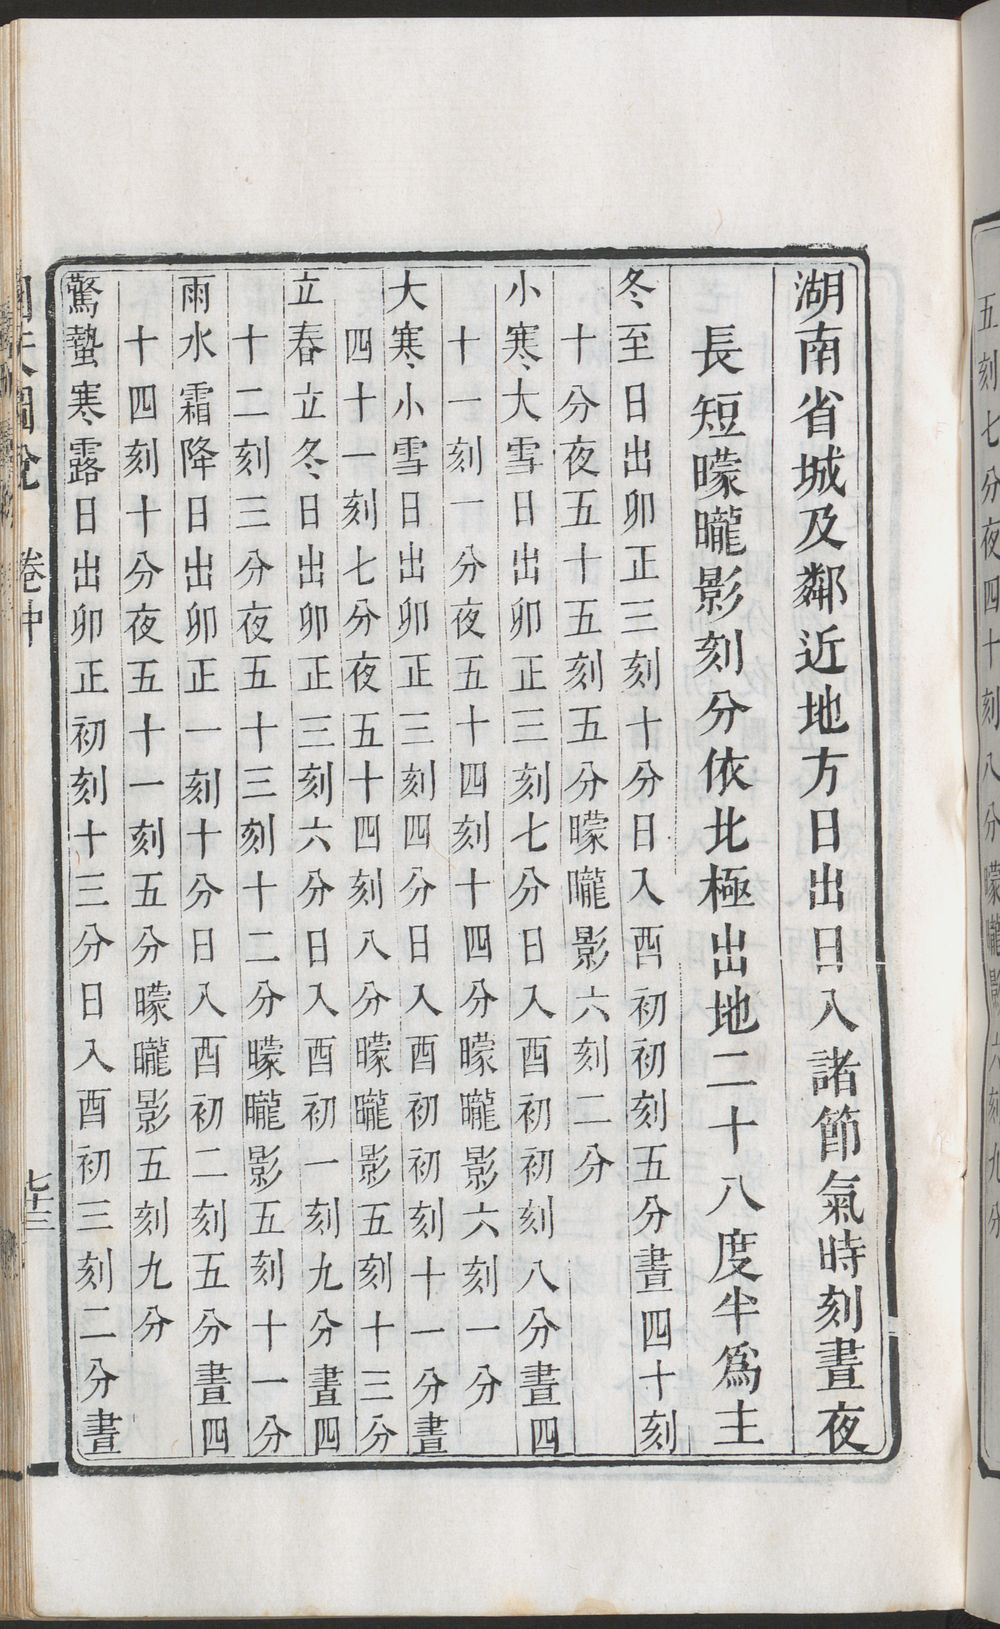 五刻七分夜四十刻八分曚曨影六刻九分
湖南省城及鄰近地方日出日入諸節氣時刻晝夜
長短曚曨影刻分依北極出地二十八度半爲主
冬至日出卯正三刻十分日入酉初初刻五分晝四十刻
十分夜五十五刻五分曚曨影六刻二分
小寒大雪日出卯正三刻七分日入酉初初刻八分晝四
十一刻一分夜五十四刻十四分曚曨影六刻一分
大寒小雪日出卯正三刻四分日入酉初初刻十一分晝
四十一刻七分夜五十四刻八分曚曨影五刻十三分
立春立冬日出卯正三刻六分日入酉初一刻九分晝四
十二刻三分夜五十三刻十二分曚曨影五刻十一分
雨水霜降日出卯正一刻十分日入酉初二刻五分晝四
十四刻十分夜五十一刻五分曚曨影五刻九分
驚蟄寒露日出卯正初刻十三分日入酉初三刻二分晝
卷中
七十三